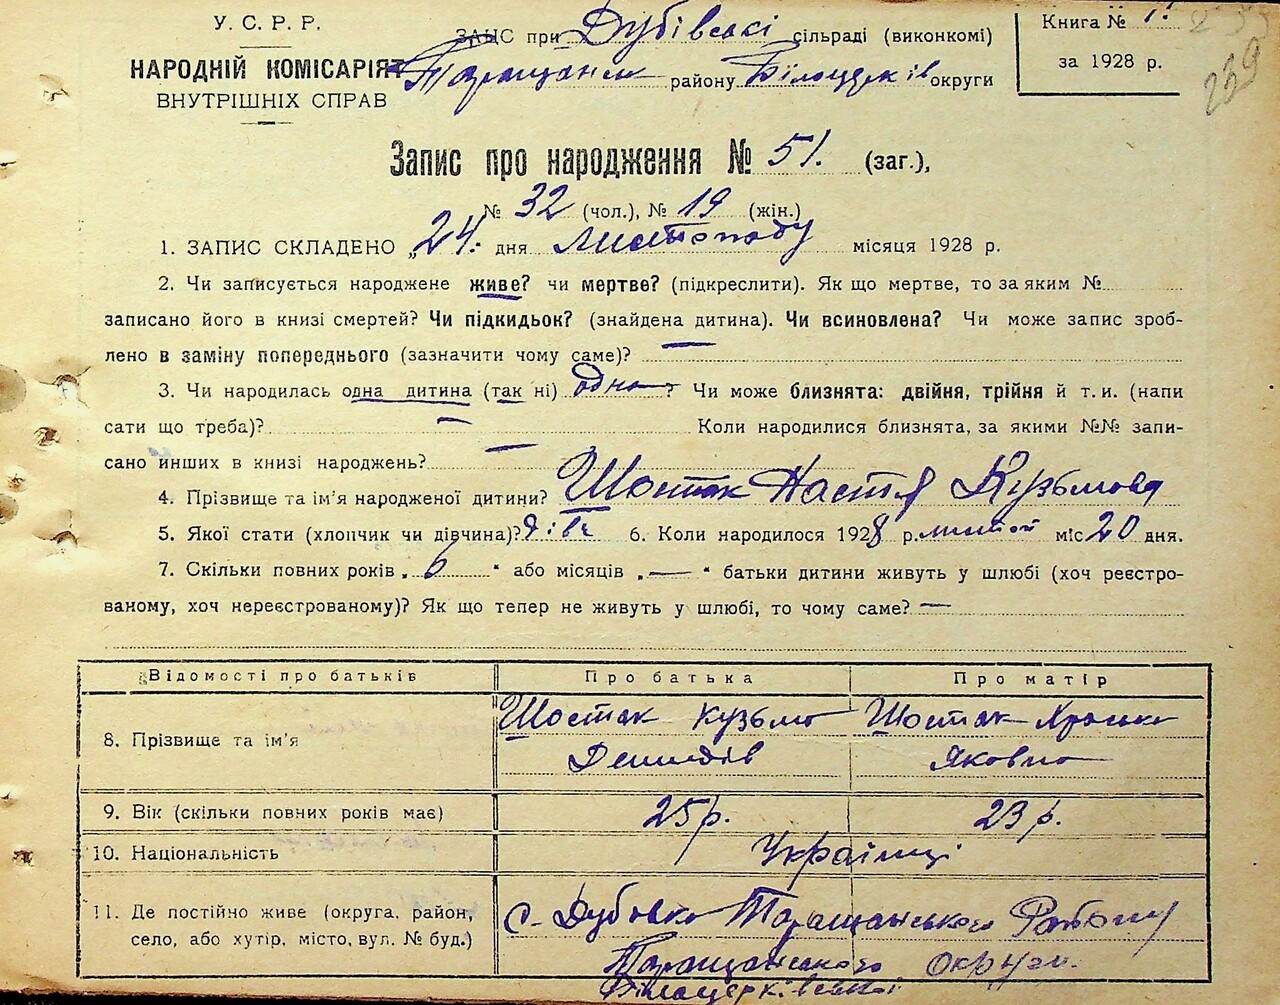 У. С. Р. Р.
НАРОДНІЙ КОМІСАРІЯТ
ВНУТРІШНІХ СПРАВ
ЗАГС при Дубівські сільраді (виконкомі)
Таращанск району Білоцерків округи
Книга № 1.
за 1928 р.
239
Запис про народження № 51. (заг.),
№ 32 (чол.), № 19 (жін.)
1. ЗАПИС СКЛАДЕНО „24. дня листопаду місяця 1928 р.
2. Чи записується народжене живе? чи мертве? (підкреслити). Як що мертве, то за яким №
записано його в книзі смертей? Чи підкидьок? (знайдена дитина). Чи всиновлена? Чи може запис зроб-
лено в заміну попереднього (зазначити чому саме)? —
3. Чи народилась одна дитина (так ні) одна? Чи може близнята: двійня, трійня й т. и. (напи
сати що треба)? — Коли народилися близнята, за якими №№ запи-
сано инших в книзі народжень? —
4. Прізвище та ім'я народженої дитини? Шостак Настя Кузьмова
5. Якої стати (хлопчик чи дівчина)? дівч 6. Коли народилося 1928 р. листоп міс 20 дня.
7. Скільки повних років „ 6 “ або місяців „ — “ батьки дитини живуть у шлюбі (хоч реєстро-
ваному, хоч нереєстрованому)? Як що тепер не живуть у шлюбі, то чому саме? —
Відомості про батьків Про батька Про матір
8. Прізвище та ім'я Шостак Кузьма Демидів Шостак Яковна
9. Вік (скільки повних років має) 25 р. 23 р.
10. Національність Українці
11. Де постійно живе (округа, район, с. Дубовка Таращанського Району
село, або хутір, місто, вул. № буд.) Таращанського округи.
Білацерківської